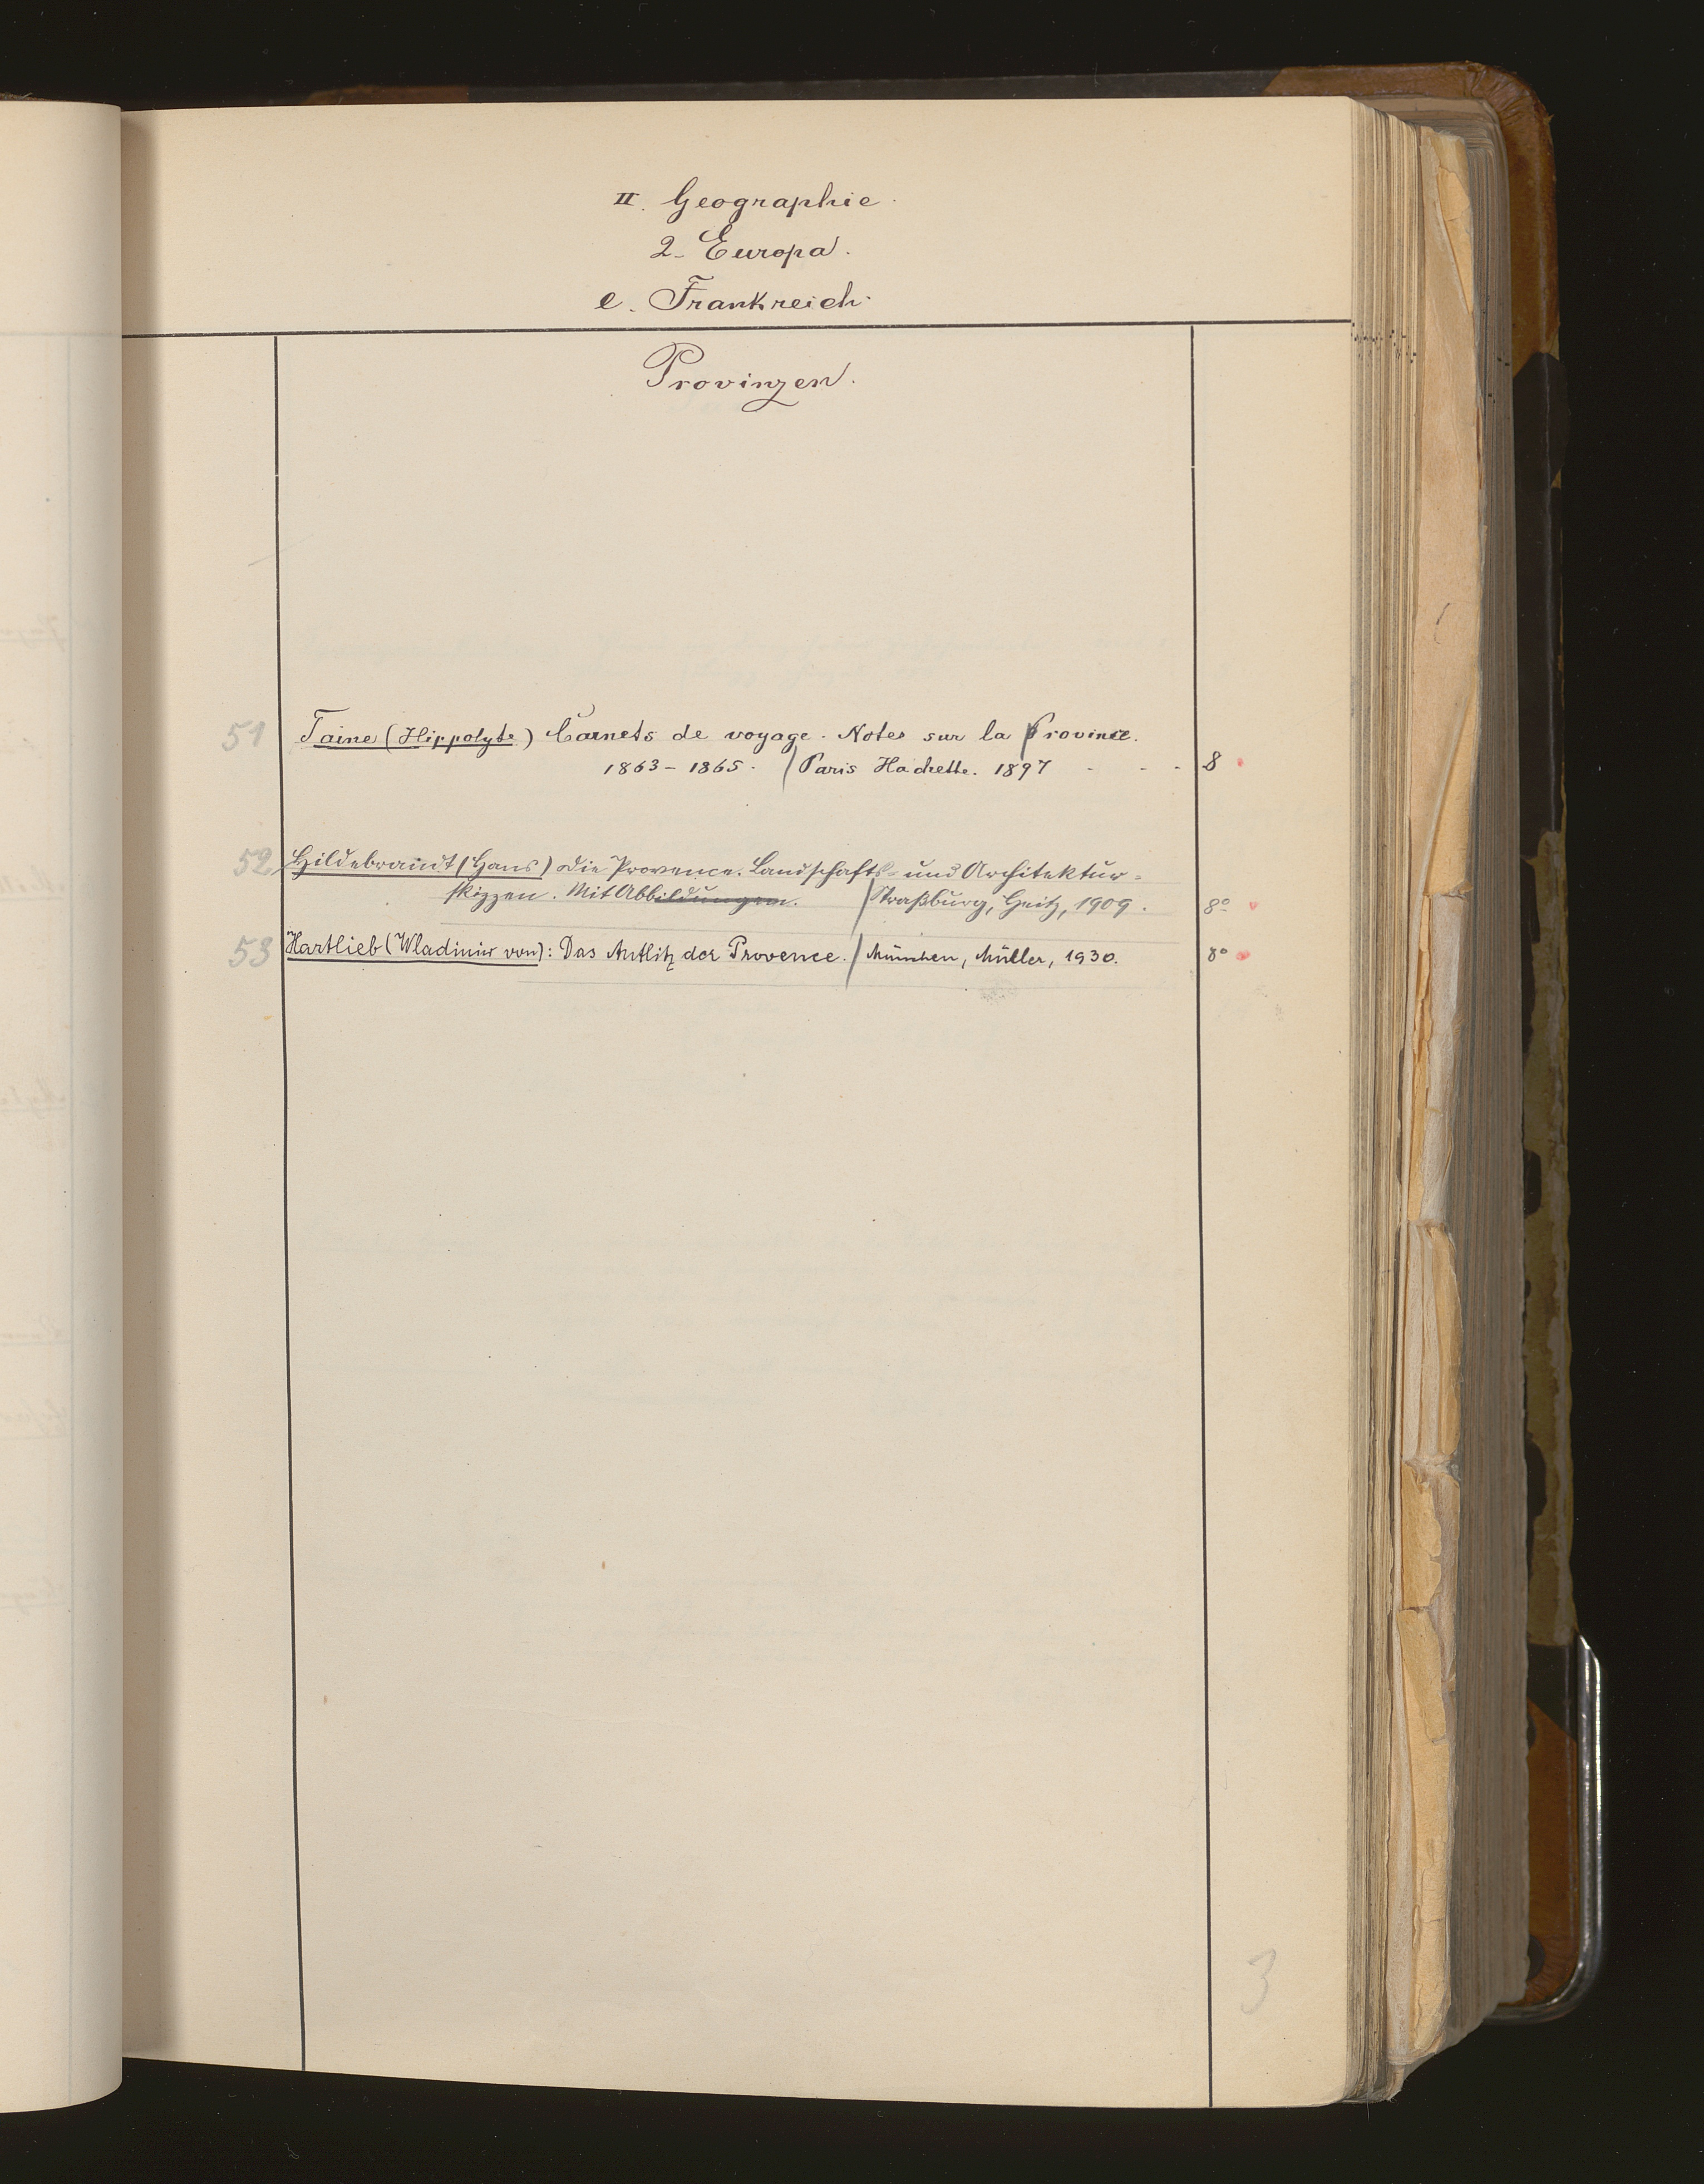 II. Geographie.
2. Europa.
e. Frankreich.
Provinzen.
51 Taine (Hippolyte) Carnets de voyage. Notes sur la Province.
1863-1865. / Paris Hachette. 1897 - - - 8
52 Hildebrandt (Hans) Die Provence. Landschafts- und Architektur-
skizzen. Mit Abbildungen. / Straßburg, Heitz, 1909. 8°
53 Hartlieb (Wladimir von): Das Antlitz der Provence. / München, Müller, 1930. 8°
3